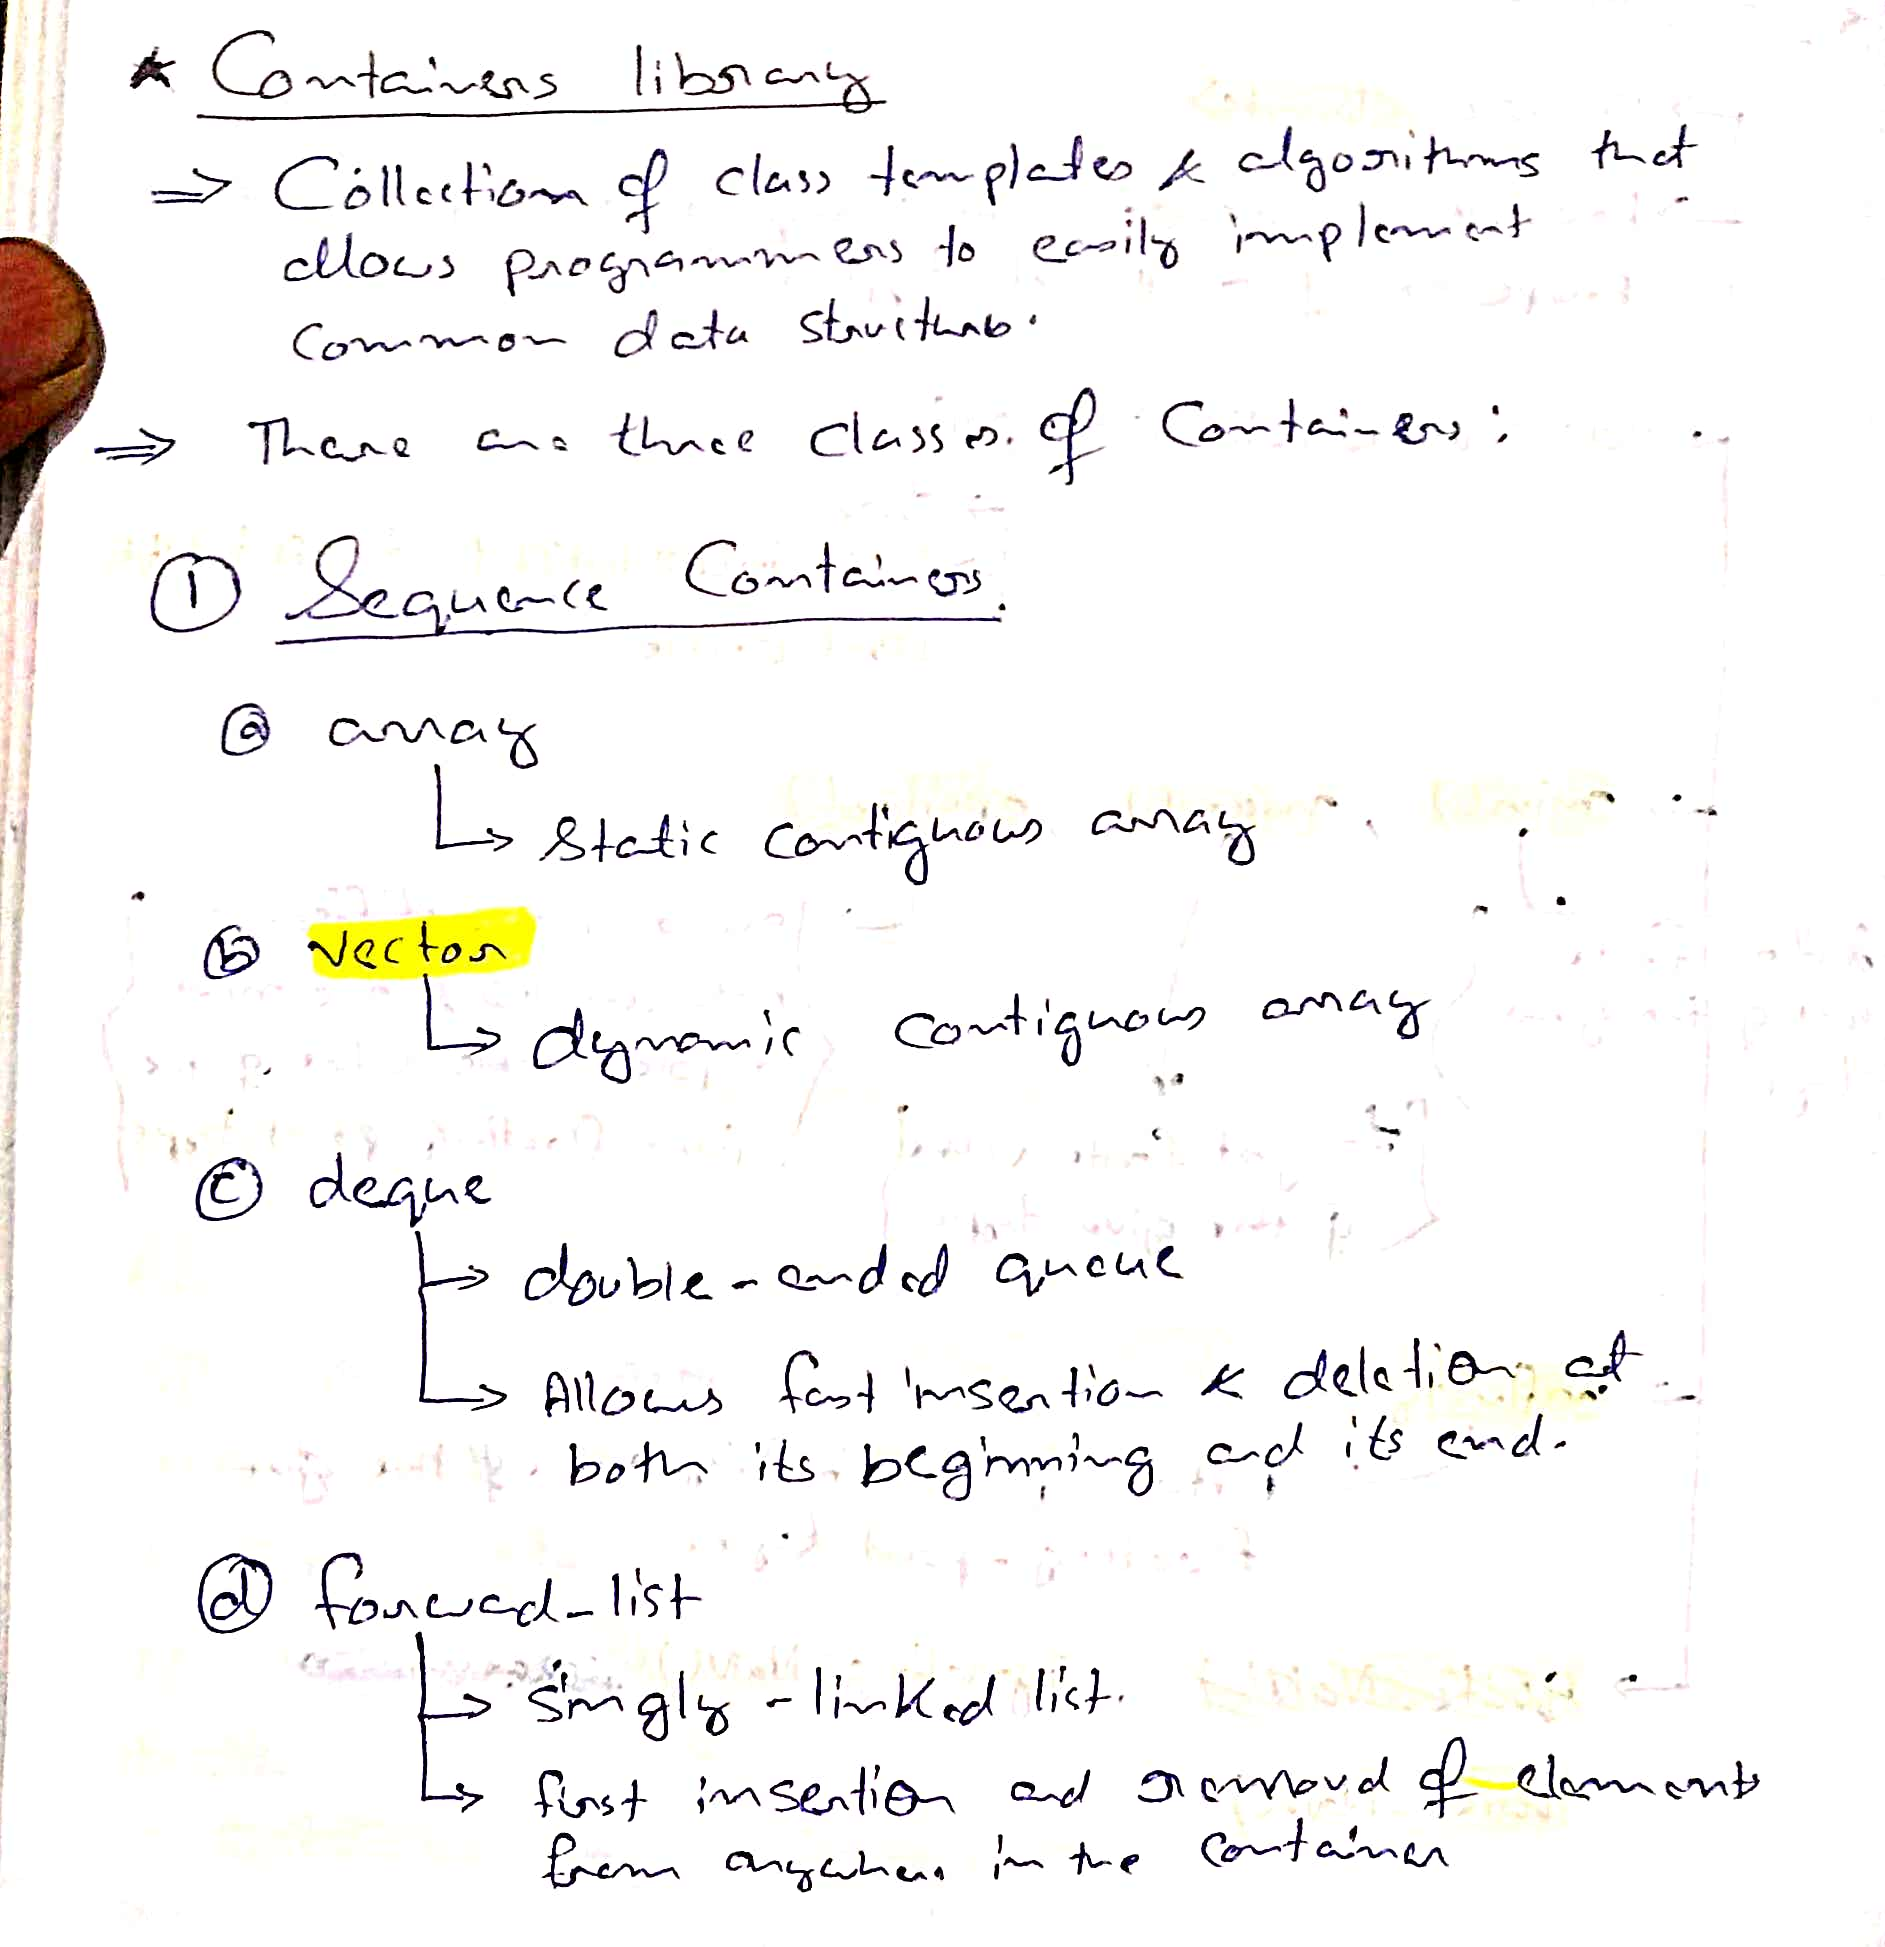 * Containers library
⇒ Collection of class templates & algorithms that
allows programmers to easily implement
common data structures.
⇒ There are three classes of Containers:
① Sequence Containers.
ⓐ array
↳ Static contiguous array
ⓑ vector
↳ dynamic contiguous array
ⓒ deque
↳ double-ended queue
↳ Allows fast insertion & deletion at
both its beginning and its end.
ⓓ forward-list
↳ singly-linked list.
↳ first insertion and removal of elements
from anywhere in the container